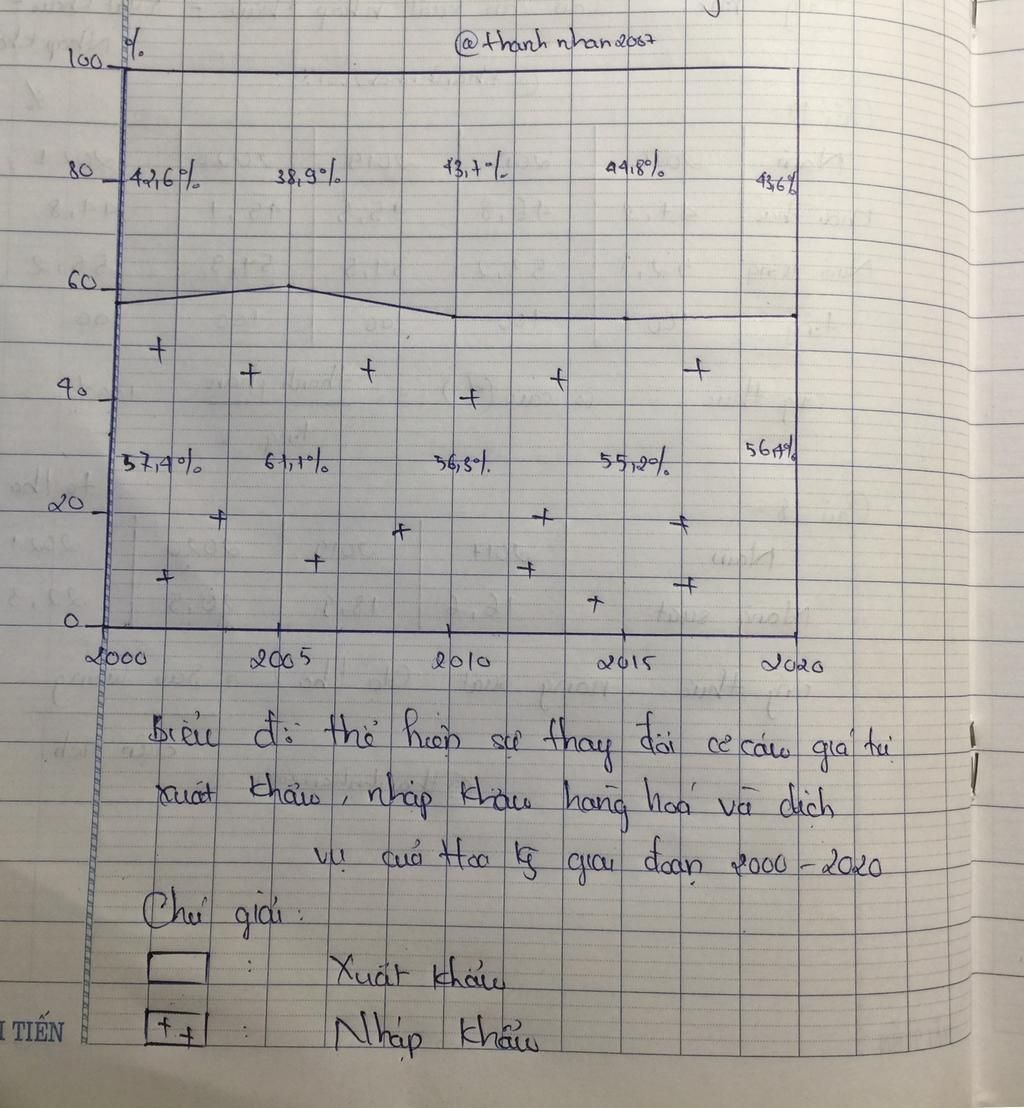 %
@thanhnhan2007
100
80 42,6% 38,9% 43,7% 44,8% 43,6%
60
40
57,4% 61,1% 56,3% 55,2% 56,4%
20
0
2000 2005 2010 2015 2020
Biểu đồ thể hiện sự thay đổi cơ cấu giá trị
xuất khẩu, nhập khẩu hàng hoá và dịch
vụ của Hoa Kỳ giai đoạn 2000 - 2020
Chú giải:
: Xuất khẩu
TIẾN : Nhập khẩu